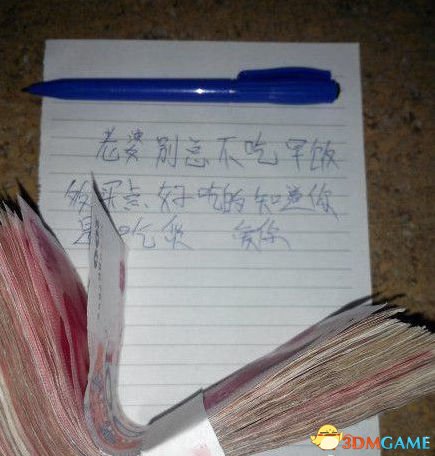 老婆别总不吃早饭
买点好吃的知道你
是 吃货 爱你
3DMGAME